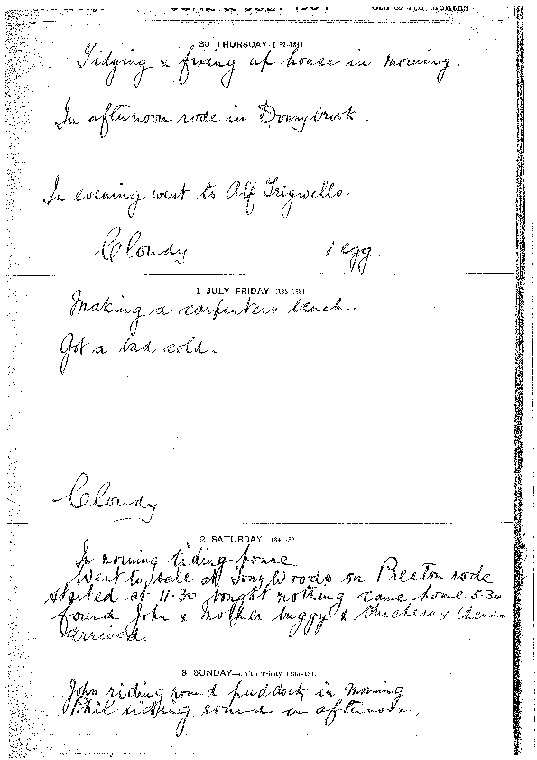 30 THURSDAY
Tidying & fixing up house in morning.
In afternoon rode in Donnybrook.
In evening went to Alf Trigwells.
Cloudy 1 egg.
1 JULY FRIDAY
Making a carpenters bench.
Got a bad cold.
Cloudy
2 SATURDAY
In morning tiding house
Went to sale at Tony Woods on Preston rode
started at 11.30 bought nothing came home 5.30
found John & Mother buggy &
arrived.
3 SUNDAY
John riding round puddock in morning
Phil riding round in afternoon.